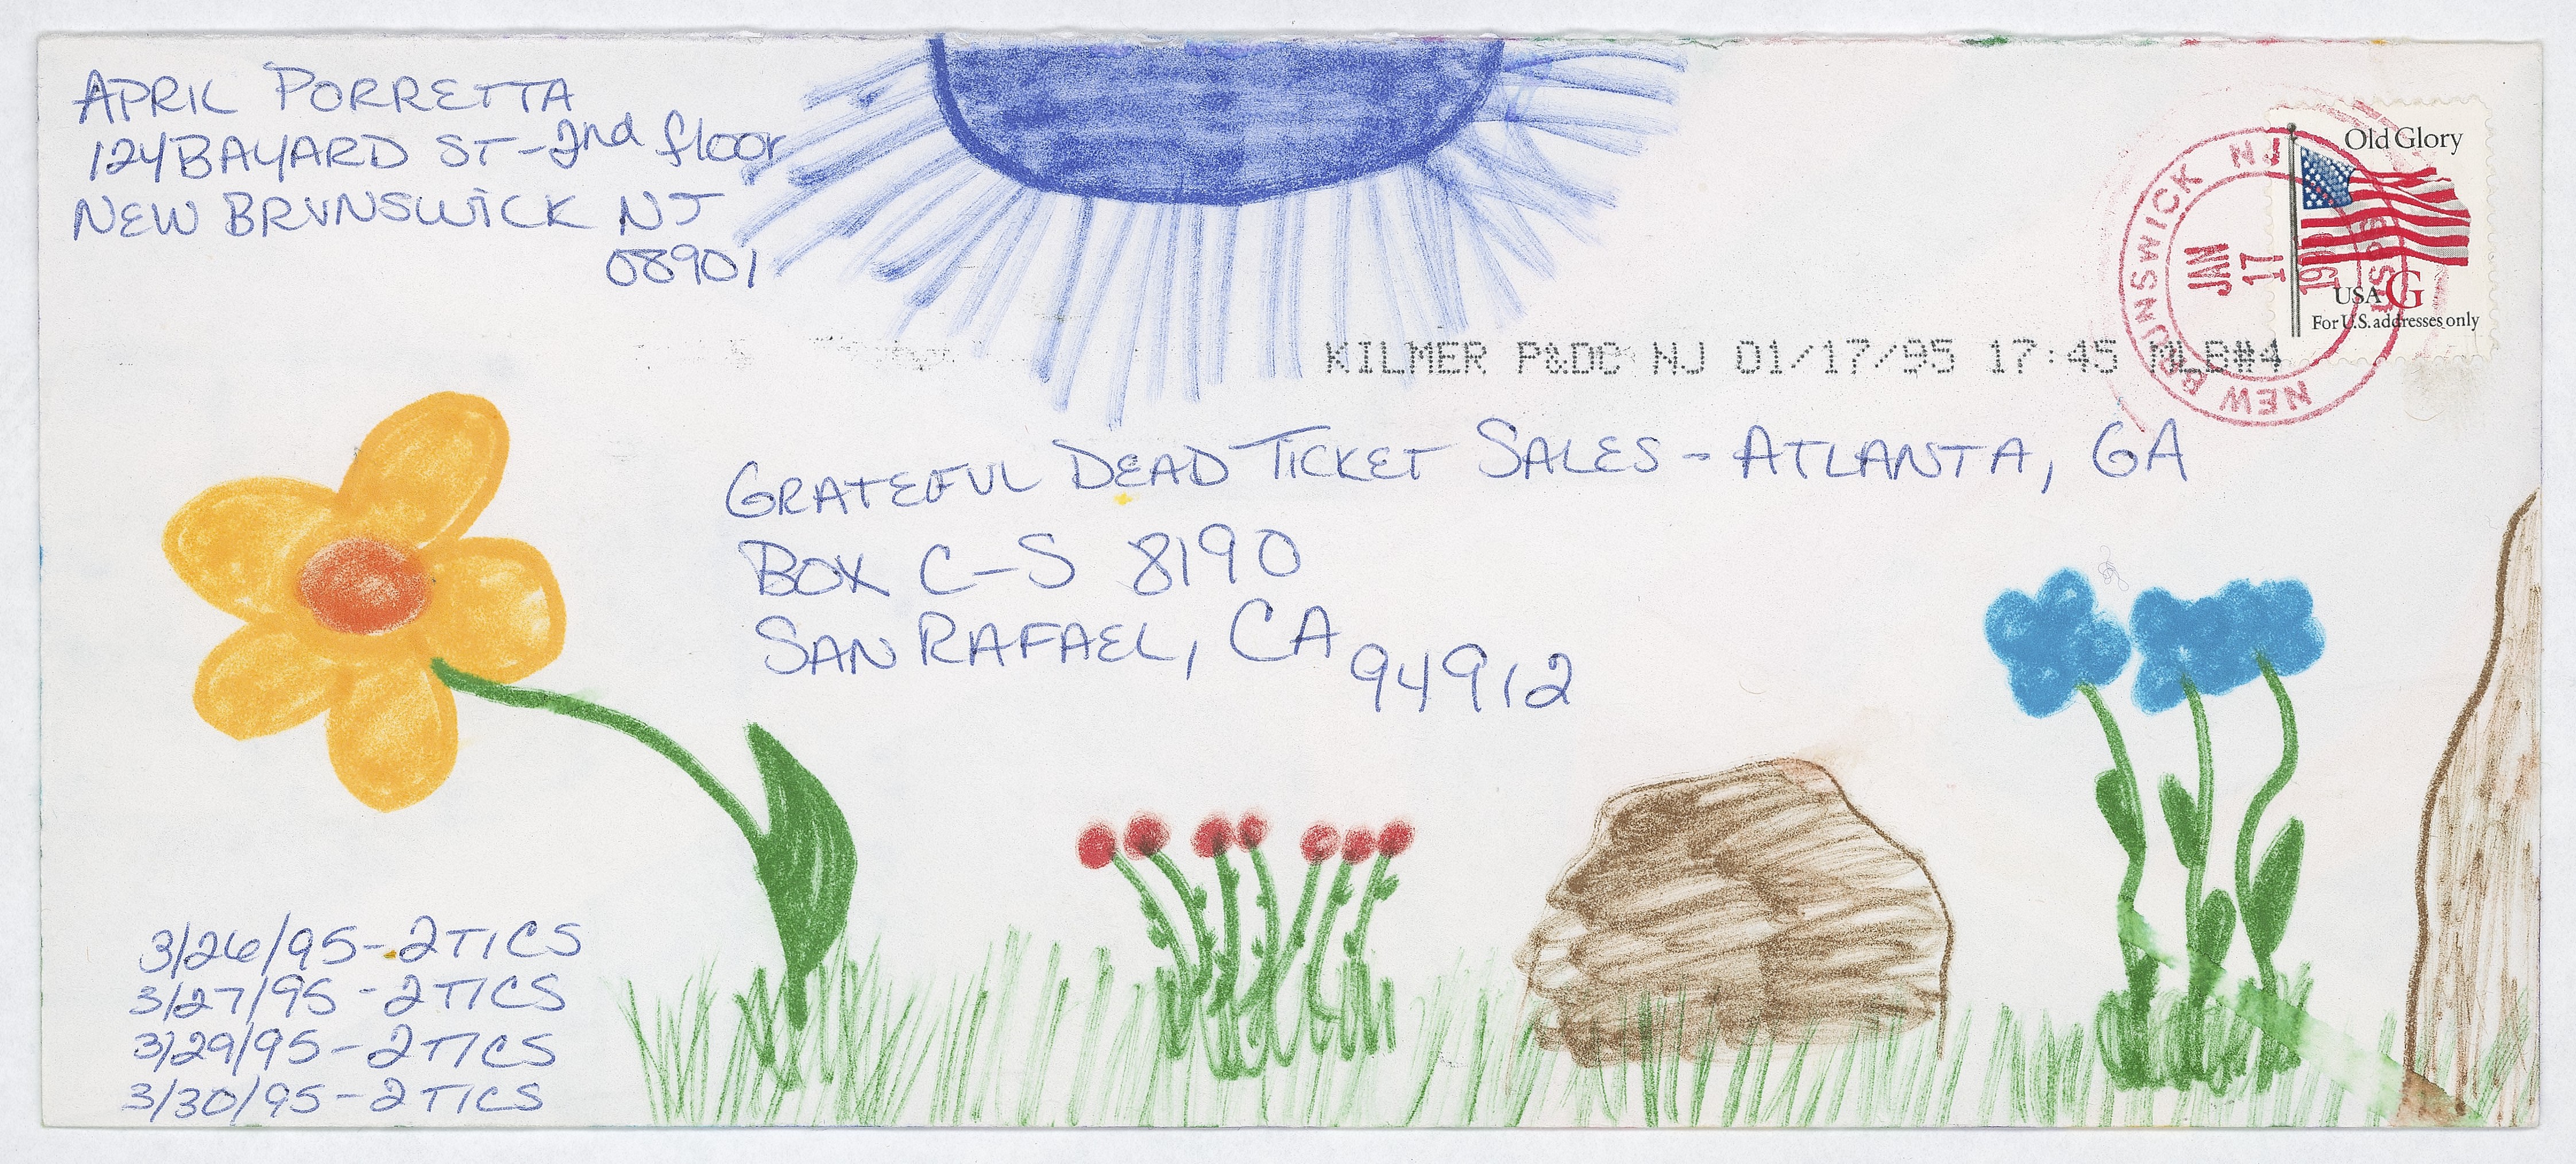 APRIL PORRETTA
124 BAYARD ST-2nd floor
NEW BRUNSWICK NJ
08901
Old Glory
USA G
For U.S. addresses only
NEW BRUNSWICK NJ
JAN
17
KILMER P&DC NJ 01/17/95 17:45 MLB#4
GRATEFUL DEAD TICKET SALES - ATLANTA, GA
BOX C-S 8190
SAN RAFAEL, CA 94912
3/26/95-2TICS
3/27/95-2TICS
3/29/95-2TICS
3/30/95-2TICS